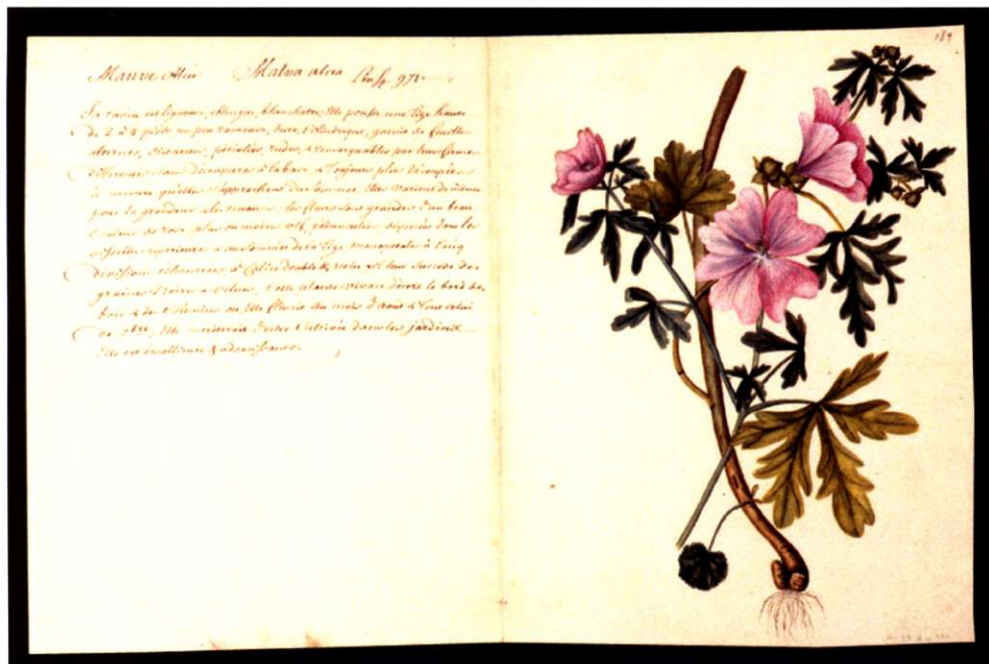 Mauve Alcée Malva alcea Lin Sp. 971.
Sa racine est ligneuse, oblongue, blanchatre, elle pousse une tige haute
de 2 à 4 pieds un peu rameuse, dure, Cilindrique, garnie de feuilles
alternes, distantes, petiolées, rudes, & remarquables par leur forme
differente dans decoupures à la base & toujours plus decoupées
à mesure qu'elles s'approchent du sommet. elles varient de même
pour la grandeur & les nuances, les fleurs sont grandes d'un beau
Couleur de rose, plus ou moins vif, pedunculées disposées dans les
aisselles superieures & au sommet de la tige monopetale à Cinq
divisions échancrées, à Calice double & velu il leur succede des
graines noires & velues, cette plante vivace décore le bord des
bois & des Chemins où elle fleurit au mois d'Aout & Tout celui
de 7bre, elle meriteroit d'etre Cultivée dans les jardins
elle est emolliente & adoucissante.
189